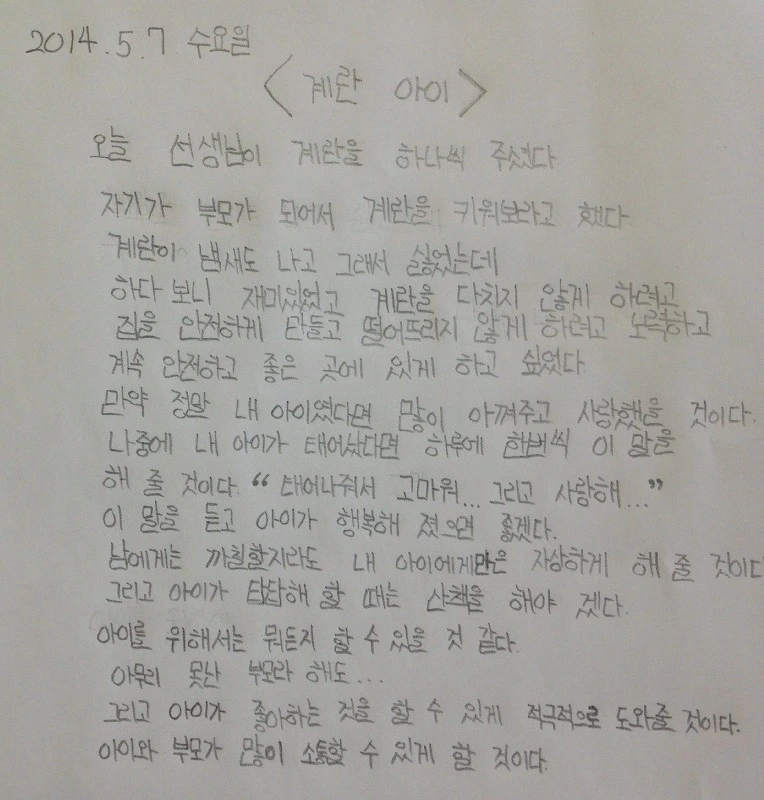 2014.5.7 수요일
<계란 아이>
오늘 선생님이 계란을 하나씩 주셨다
자기가 부모가 되어서 계란을 키워보라고 했다
계란이 냄새도 나고 그래서 싫었는데
하다 보니 재미있었고 계란을 다치지 않게 하려고
집을 안전하게 만들고 떨어뜨리지 않게 하려고 노력하고
계속 안전하고 좋은 곳에 있게 하고 싶었다
만약 정말 내 아이였다면 많이 아껴주고 사랑했을 것이다.
나중에 내 아이가 태어났다면 하루에 한번씩 이 말을
해 줄 것이다 “태어나줘서 고마워... 그리고 사랑해...”
이 말을 듣고 아이가 행복해 졌으면 좋겠다.
남에게는 까칠할지라도 내 아이에게만은 자상하게 해 줄 것이다
그리고 아이가 답답해 할 때는 산책을 해야 겠다.
아이를 위해서는 뭐든지 할 수 있을 것 같다.
아무리 못난 부모라 해도...
그리고 아이가 좋아하는 것을 할 수 있게 적극적으로 도와줄 것이다.
아이와 부모가 많이 소통할 수 있게 할 것이다.